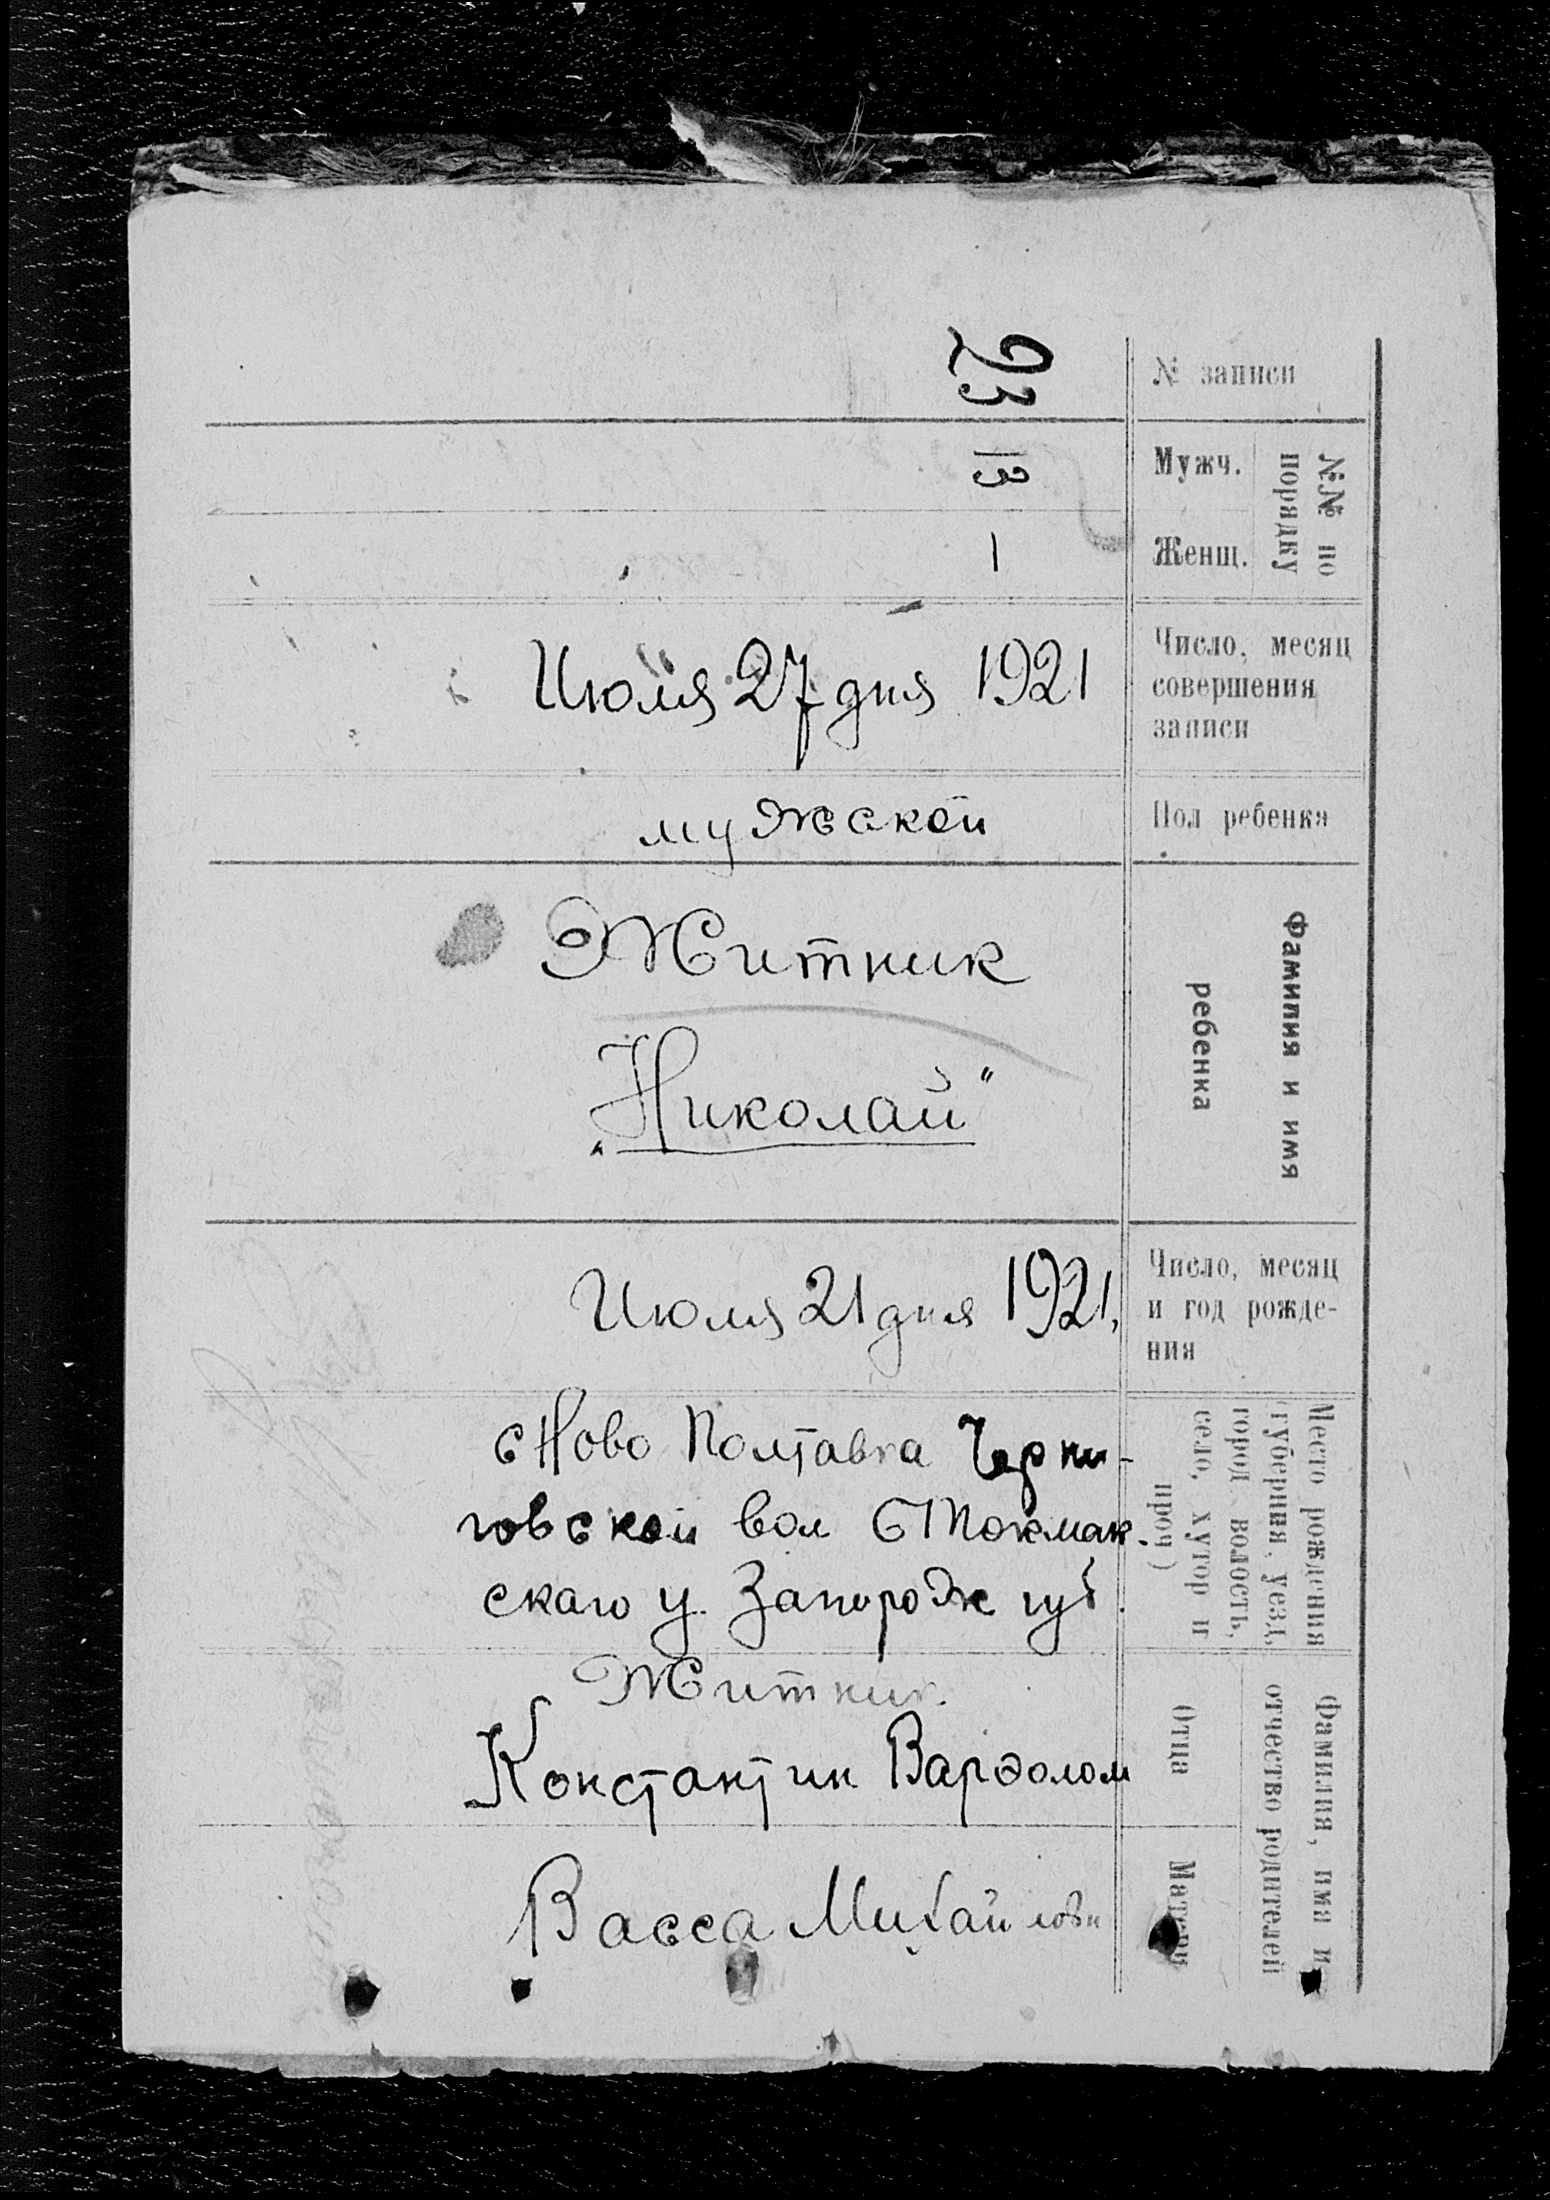 № записи
23
№№ по
порядку
Мужч.
13
Женщ.
1
Число, месяц
совершения
записи
Июля 27 дня 1921
Пол ребенка
мужской
Фамилия и имя
ребенка
Житник
„Николай“
Число, месяц
и год рожде-
ния
Июля 21 дня 1921,
Место рождения
(губерния, уезд,
город, волость,
село, хутор и
проч)
с Ново Полтавка Черни-
говской вол Б Токмак.
скаго у. Запорож губ.
Фамилия, имя и
отчество родителей
Отца
Житник.
Константин Варфолом
Матери
Васса Михайловн